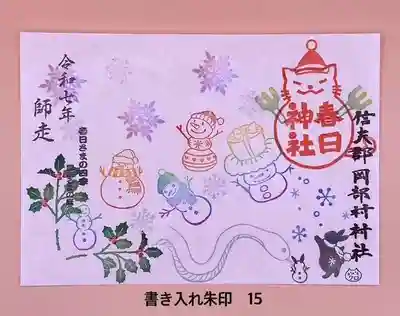 信夫郡岡部村村社
春日
神社
令和七年
師走
春日さまの四季
書き入れ朱印 15